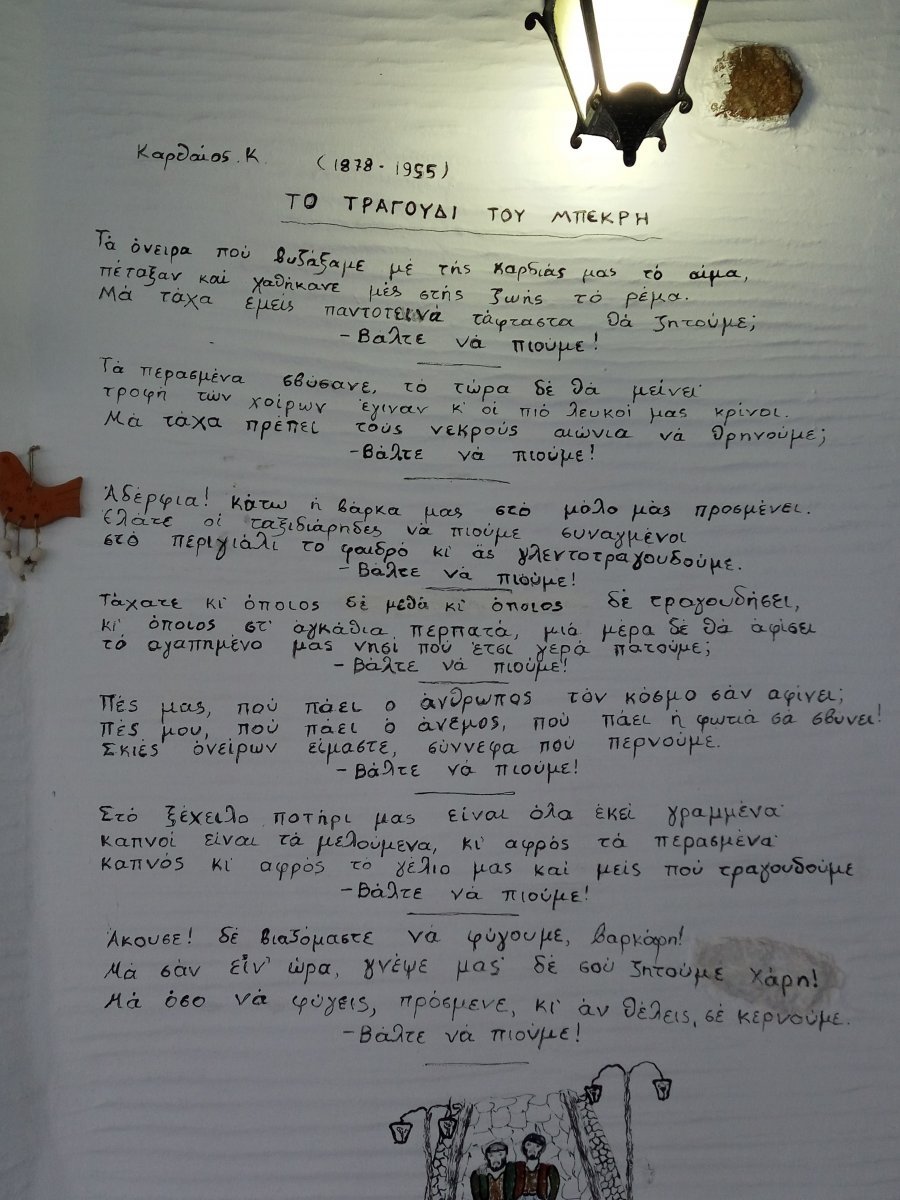 Καρθαίος. Κ. (1878 - 1955)
ΤΟ ΤΡΑΓΟΥΔΙ ΤΟΥ ΜΠΕΚΡΗ
Τά όνειρα πού βυζάξαμε μέ τής καρδιάς μας τό αίμα,
πέταξαν καί χαθήκανε μές στής ζωής τό ρέμα.
Μά τάχα εμείς παντοτεινά τάφταστα θά ζητούμε;
- Βάλτε νά πιούμε!
Τά περασμένα σβύσανε, τό τώρα δέ θά μείνει·
τροφή τών χοίρων έγιναν κ' οί πιό λευκοί μας κρίνοι.
Μά τάχα πρέπει τούς νεκρούς αιώνια νά θρηνούμε;
- Βάλτε νά πιούμε!
Αδέρφια! κάτω ή βάρκα μας στό μόλο μάς προσμένει.
Ελάτε οί ταξιδιάρηδες νά πιούμε συναγμένοι
στό περιγιάλι το φαιδρό κι' άς γλεντοτραγουδούμε.
- Βάλτε νά πιούμε!
Τάχατε κι' όποιος δέ μεθά κι' όποιος δέ τραγουδήσει,
κι' όποιος στ' αγκάθια περπατά, μιά μέρα δέ θά αφίσει
τό αγαπημένο μας νησί πού έτσι γερά πατούμε;
- Βάλτε νά πιούμε!
Πές μας, πού πάει ο άνθρωπος τόν κόσμο σάν αφίνει;
Πές μου, πού πάει ό άνεμος, πού πάει ή φωτιά σά σβύνει!
Σκιές ονείρων είμαστε, σύννεφα πού περνούμε.
- Βάλτε νά πιούμε!
Στό ξέχειλο ποτήρι μας είναι όλα εκεί γραμμένα·
καπνοί είναι τά μελούμενα, κι' αφρός τά περασμένα·
καπνός κι' αφρός το γέλιο μας καί μείς πού τραγουδούμε
- Βάλτε νά πιούμε!
Άκουσε! δέ βιαζόμαστε νά φύγουμε, βαρκάρη!
Μά σάν είν' ώρα, γνέψε μας· δέ σού ζητούμε χάρη!
Μά όσο νά φύγεις, πρόσμενε, κι' άν θέλεις, σέ κερνούμε.
- Βάλτε νά πιούμε!